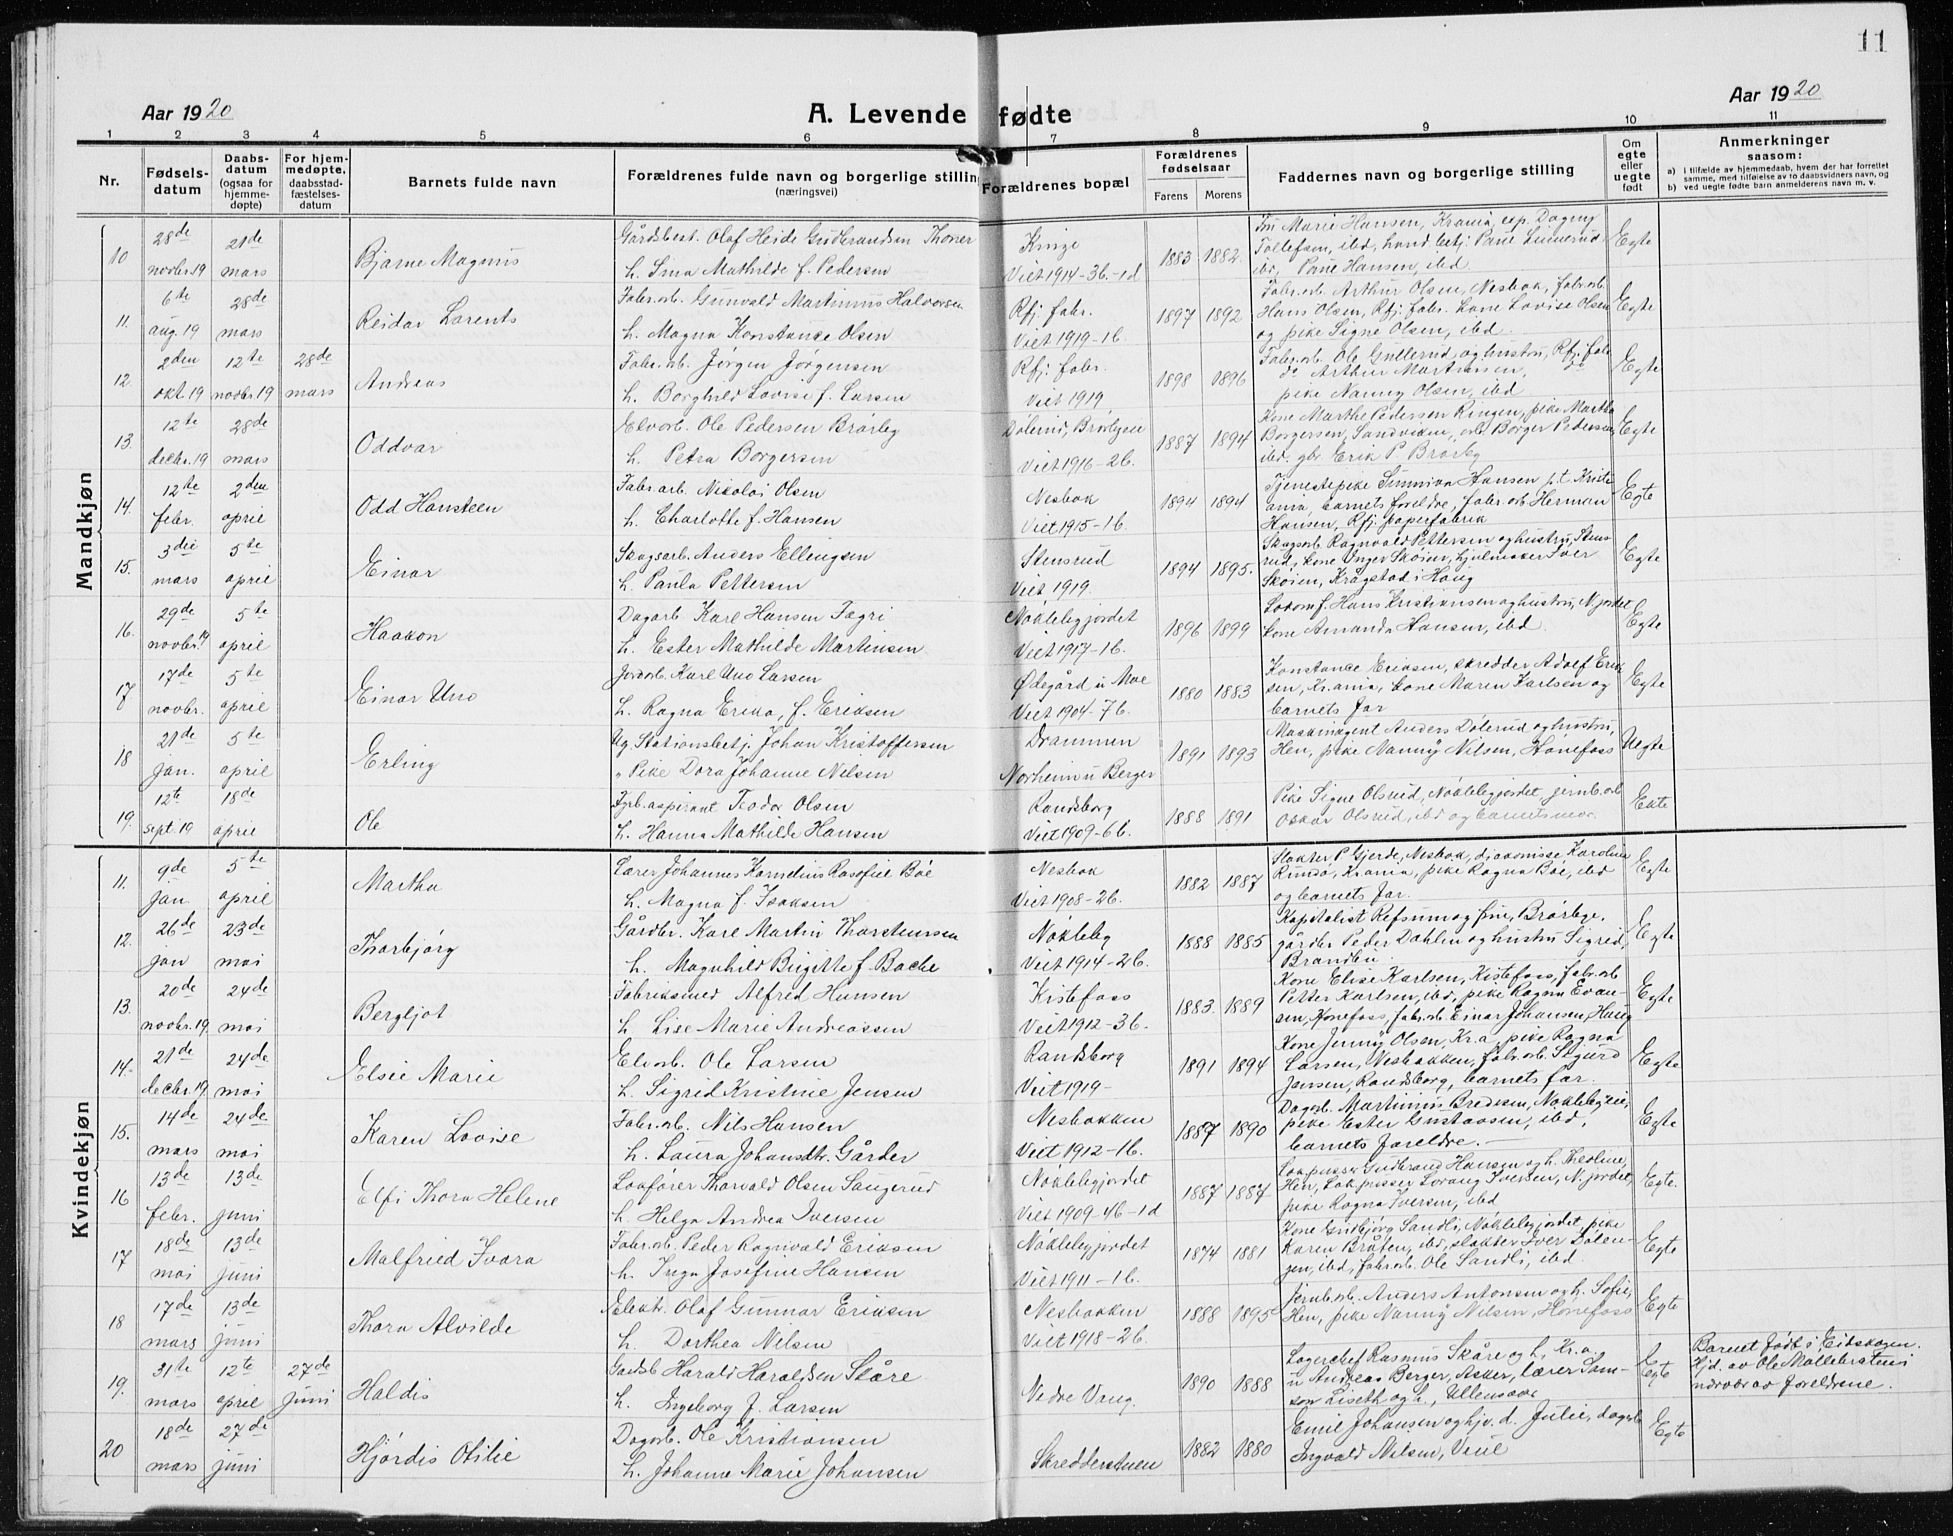 11
Aar 1920
A. Levende fødte
Aar 1920
1 2 3 4 5 6 7 8 9 10 11
Nr.
Fødsels-
datum
Daabs-
datum
(ogsaa for
hjemme-
døpte)
For hjem-
medøpte.
daabsstad-
fæstelses-
datum
Barnets fulde navn
Forældrenes fulde navn og borgerlige stilling
(næringsvei)
Forældrenes bopæl
Forældrenes
fødselsaar
Farens Morens
Faddernes navn og borgerlige stilling
Om
egte
eller
uegte
født
Anmerkninger
saasom:
a) i tilfælde av hjemmedaab, hvem der har forrettet
samme, med tilføielse av to daabsvidners navn, og
b) ved uegte fødte barn anmelderens navn m. v.
Mandkjøn
10 28de novbr. 19 21de mars
Bjarne Magnus
Gårdsbest. Olaf Heide Gudbrandsen Thoner
h. Sina Mathilde f. Pedersen
Viet 1914-3b.-1d
1883 1882
Fru Marie Hansen, Krania, exp. Dagny
Tollefsen, ibd, handbetj. Paul
ibd, Hansen, ibd
Egte
11. 6te aug. 19 28de mars
Reidar Lorents
Fabr.arb. Gunvald Martinius Halvorsen
h. Magna Konstance Olsen
Rfj. fabr.
Viet 1919-1b.
1897 1892
Fabr.arb. Arthur Olsen, Nesbak, fabr.arb.
Hans Olsen, Rfj. fabr. kone Lovise Olsen
og pike Signe Olsen, ibd.
Egte
12. 2den okt. 19 12te novbr. 19 28de mars
Andreas
Fabr.arb. Jørgen Jørgensen
h. Borghild Lovise f. Larsen
Rfj. fabr.
Viet 1919
1898 1896
Fabr.arb. Ole Gullerud og hustru, Rfj. fabr.
do Arthur Martinsen, do
pike Nanny Olsen, ibd
Egte
13. 12te decbr. 19 28de mars
Oddvar
Elvarb. Ole Pedersen Brørby
h. Petra Borgersen
Dølerud, Brørbyeie
Viet 1916-2b.
1887 1894
Kone Marthe Pedersen Ringen, pike Martha
Borgersen, Sandviken, arb. Borger Pedersen,
ibd, gbr. Erik P. Brørby
Egte
14. 12te febr. 2den april
Odd Hansteen
Fabr.arb. Nikolai Olsen
h. Charlotte f. Hansen
Nesbak
Viet 1915-1b.
1894 1894
Tjenestepike Sunniva Hansen p.t. Kristi-
ania, barnets foreldre, fabr.arb. Herman
Hansen, Rfj. papirfabrik
Egte
15. 3die mars 5te april
Einar
Skogsarb. Anders Ellingsen
h. Paula Pettersen
Stensrud
Viet 1919.
1894 1895.
Skogsarb. Ragnvald Pettersen og hustru, Stens-
rud, kone Inger Skøien, hjulmaker Iver
Skøien, Krågstad i Haug
Egte
16. 29de novbr. 19 5te april
Haakon
Dagarb. Karl Hansen Fagri
h. Ester Mathilde Martinsen
Nøklebygjordet
Viet 1917-1b.
1896 1899
Lokomf. Hans Kristiansen og hustru, N.jordet
kone Amanda Hansen, ibd.
Egte
17 17de novbr. 5te april
Einar Uno
Jordarb. Karl Uno Larsen
h. Ragna Erika, f. Eriksen
Ødegård u Moe
Viet 1904-7b.
1880 1883
Konstance Eriksen, skredder Adolf Erik-
sen, Krania, kone Maren Karlsen og
barnets far
Egte
18 21de jan. 5te april
Erling
Ug. Stationsbetj. Johan Kristoffersen
" Pike Dora Johanne Nilsen
Drammen
Norheim u Berger
1891 1893
Maskinagent Anders Dølerud og hustru,
Hen, pike Nanny Nilsen, Hønefoss
Uegte
19. 12te sept. 19 18de april
Ole
Fyrb.aspirant Teodor Olsen
h. Hanna Mathilde Hansen
Randsborg
Viet 1909-6b.
1888 1891
Pike Signe Olsrud, Nøklebygjordet, jernb.arb.
Oskar Olsrud, ibd og barnets mor.
Ekte
Kvindekjøn
11. 9de jan. 5te april
Martha
Lærer Johannes Kornelius Rasofiel Bøe
h. Magna f. Isaksen
Nesbak
Viet 1908-2b.
1882 1887
Slakter P. Gjerde, Nesbak, diakonisse Karoline
Rundø, Krania, pike Ragna Bøe, ibd
og barnets far.
Egte
12. 26de jan 23de mai
Thorbjørg
Gårdbr. Karl Martin Thorstensen
h. Magnhild Birgitte f. Bache
Nøkleby
Viet 1914-2b.
1888 1885
Kapitalist Refsum og frue, Brørbye.
gårdbr. Peder Dahlen og hustru Sigrid,
Brandbu.
Egte
13. 20de novbr. 19. 24de mai
Bergljot
Fabriksmed Alfred Hansen
h. Lise Marie Andreassen
Kistefoss
Viet 1912-3b.
1883. 1889
Kone Elise Karlsen, Kistefoss, fabr.arb.
Petter Karlsen, ibd, pike Ragna Evan-
sen, Hønefoss, fabr.arb. Einar Johansen, Haug
Egte
14. 21de decbr. 19. 24de mai
Elsie Marie
Elvarb. Ole Larsen
h. Sigrid Kristine Jensen
Randsborg
Viet 1919-
1891 1894
Kone Jenny Olsen, Kr.a, pike Ragna
Larsen, Nesbakken, fabr.arb. Sigurd
Jensen, Randsborg, barnets far.
Egte
15. 14de mars 24de mai
Karen Lovise
Fabr.arb. Nils Hansen
h. Laura Johansdtr. Gårder
Nesbakken
Viet 1912-1b.
1887 1890
Dagarb. Martinius Bredesen, Nøklebyeie,
pike Ester Gustavsen, ibd,
barnets foreldre. -
Egte
16 13de febr. 13de juni
Elfi Thora Helene
Lokfører Thorvald Olsen Sangerud
h. Helga Andrea Iversen
Nøklebygjordet
Viet 1909-4b-1d
1887 1887
Lokpusser Gudbrand Hansen og h. Theoline,
Hen, Lokpusser Lorang Iversen, N.jordet,
pike Ragna Iversen, ibd
Egte.
17 18de mai 13de juni
Malfried Ivara
Fabr.arb. Peder Ragnvald Eriksen
h. Inga Josefine Hansen
Nøklebygjordet
Viet 1911-1b.
1874 1881
Kone Gudbjørg Sandli, Nøklebygjordet, pike
Karen Bråten, ibd, slakter Iver Dølen-
gen, ibd, fabr.arb. Ole Sandli, ibd.
Egte
18 17de mars 13de juni
Thora Alvilde
Elektr. Olaf Gunnar Eriksen
h. Dorthea Nilsen
Nesbakken
Viet 1918-2b.
1888 1895
Jernb.arb. Anders Antonsen og h. Sofie,
Hen, pike Nanny Nilsen, Hønefoss
Egte
19. 31te mars 12te april 27de juni
Haldis
Gårdsb. Harald Haraldsen Skåre
h. Ingeborg f. Larsen
Nedre Vang.
1890 1888
Lagerchef Rasmus Skåre og h, Kr.a.
Andreas Berger, Asker, lærer Sam-
son Liseth og h., Ullensaker
Egte
Barnet født i Eidskogen.
Hjd. av Ole
nærvær av foreldrene.
20 18de mars 27de juni
Hjørdis Otilie
Dagarb. Ole Kristiansen
h. Johanne Marie Johansen
Skredderstuen
1882 1880
Emil Johansen og hj.v.d. Julie, dagarb
Ingvald Nilsen, Veul
Egte